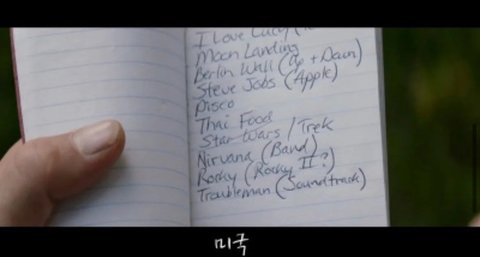 I Love Lucy
Moon Landing
Berlin Wall (Up + Down)
Steve Jobs (Apple)
Disco
Thai Food
Star Wars / Trek
Nirvana (Band)
Rocky (Rocky II?)
Troubleman (Soundtrack)
미국